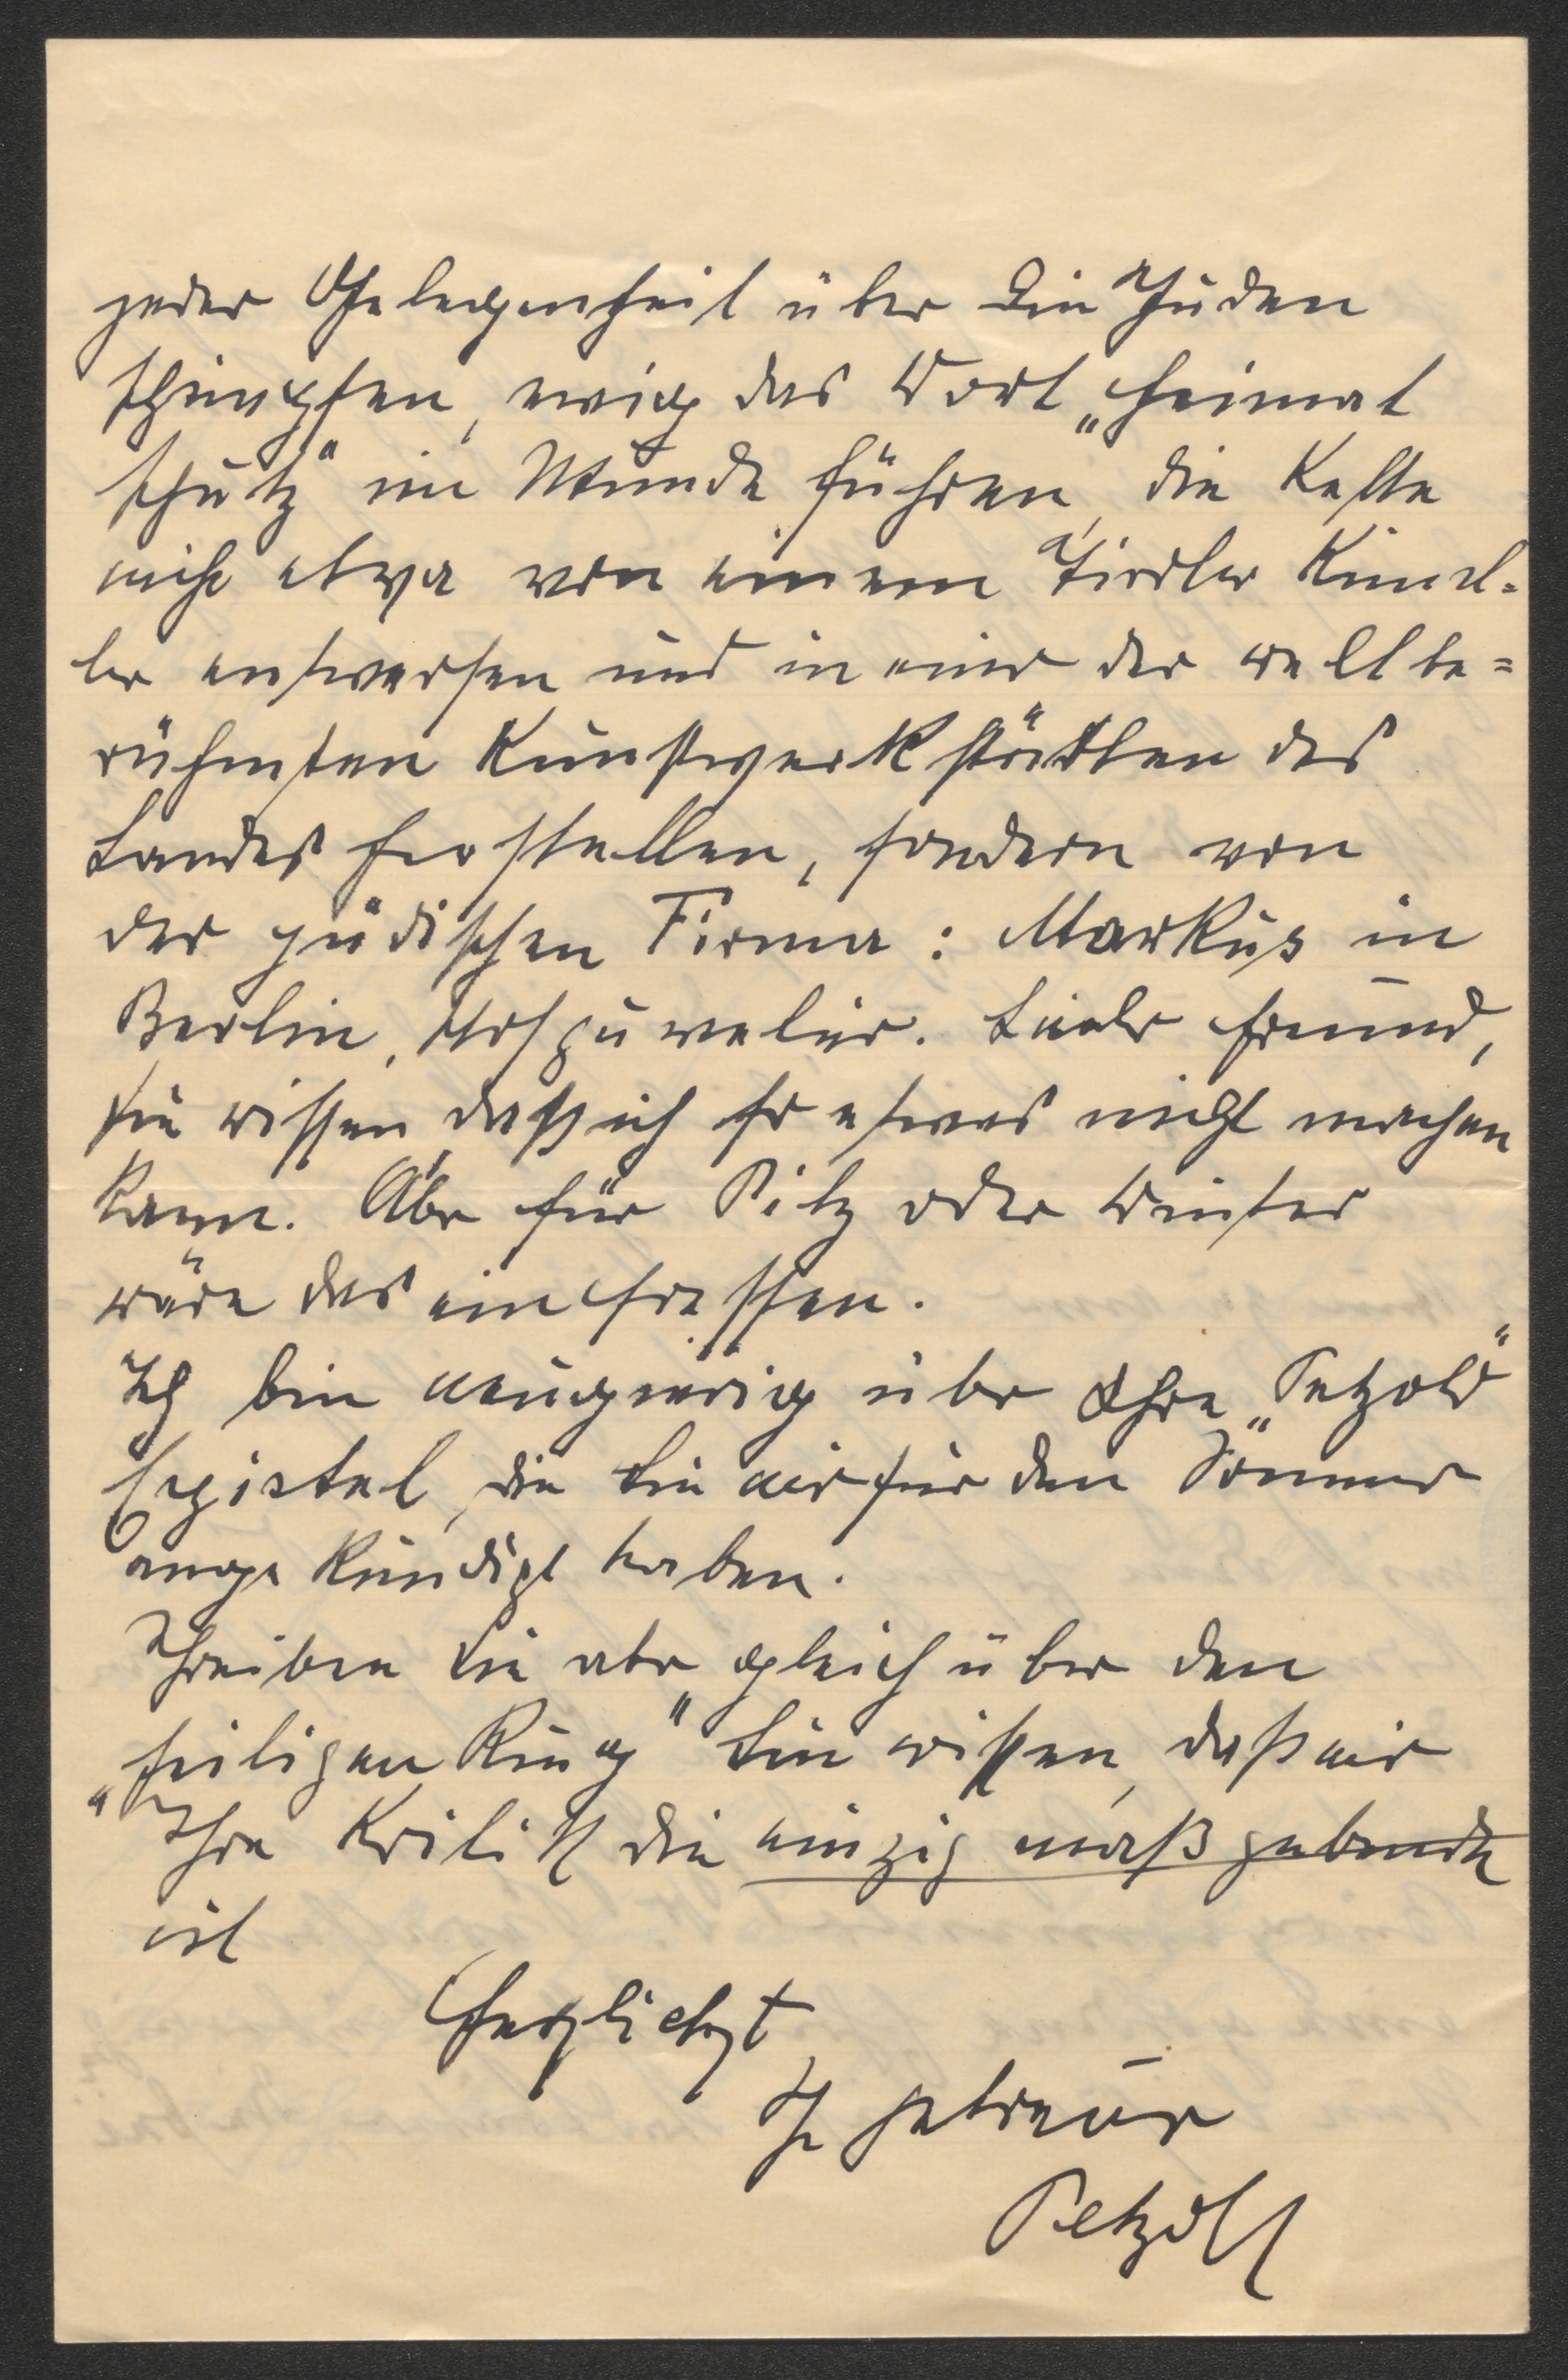 jeder Gelegenheit über die Juden
schimpfen, ewig das Wort „Heimat
schutz" im Munde führen, die Kette
nicht etwa von einem Tiroler Künst-
ler entwerfen und in einer der weltbe=
rühmten Kunstwerkstätten des
Landes herstellen, sondern von
der jüdischen Firma: Markus in
Berlin, Hofjuwelier. Lieber Freund,
Sie wissen, daß ich so etwas nicht machen
kann. Aber für Pitz oder Winter
wäre das ein Fressen.
Ich bin neugierig über Ihre „Petzold"
Epistel, die Sie mir für den Sommer
angekündigt haben.
Schreiben Sie aber gleich über den
„heiligen Krug" Sie wissen, daß mir
Ihre Kritik die einzig maßgebende
ist
Herzlichst
Ihr getreuer
Petzold